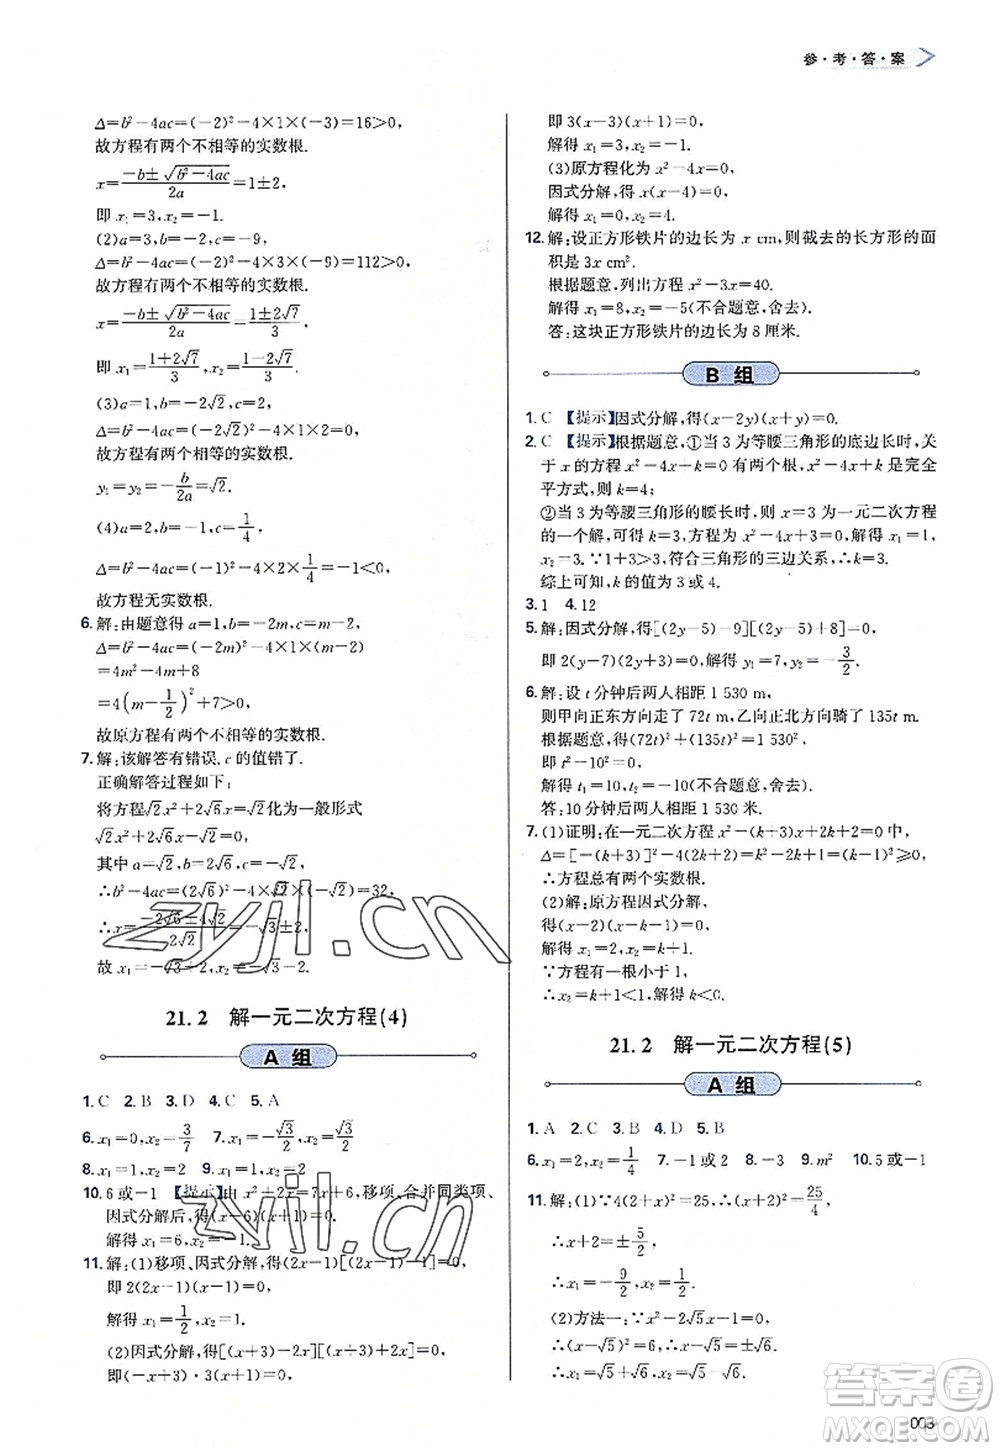 参·考·答·案
Δ=b²-4ac=(-2)²-4×1×(-3)=16>0,
故方程有两个不相等的实数根.
x=\frac{-b±\sqrt{b²-4ac}}{2a}=1±2,
即 x₁=3,x₂=-1.
(2)a=3,b=-2,c=-9,
Δ=b²-4ac=(-2)²-4×3×(-9)=112>0,
故方程有两个不相等的实数根.
x=\frac{-b±\sqrt{b²-4ac}}{2a}=\frac{1±2√7}{3},
即 x₁=\frac{1+2√7}{3},x₂=\frac{1-2√7}{3}.
(3)a=1,b=-2√2,c=2,
Δ=b²-4ac=(-2√2)²-4×1×2=0,
故方程有两个相等的实数根.
y₁=y₂=-\frac{b}{2a}=√2.
(4)a=2,b=-1,c=\frac{1}{4},
Δ=b²-4ac=(-1)²-4×2×\frac{1}{4}=-1<0,
故方程无实数根.
6.解:由题意得 a=1,b=-2m,c=m-2,
Δ=b²-4ac=(-2m)²-4×1×(m-2)
=4m²-4m+8
=4(m-\frac{1}{2})²+7>0,
故原方程有两个不相等的实数根.
7.解:该解答有错误.c 的值错了.
正确解答过程如下:
将方程√2x²+2√6x=√2化为一般形式
√2x²+2√6x-√2=0,
其中 a=√2,b=2√6,c=-√2,
∴b²-4ac=(2√6)²-4×√2×(-√2)=32,
∴x=\frac{-2√6±4√2}{2√2}=-√3±2,
故 x₁=-√3+2,x₂=-√3-2.
21.2 解一元二次方程(4)
A 组
1.C 2.B 3.D 4.C 5.A
6.x₁=0,x₂=\frac{3}{7} 7.x₁=-\frac{√3}{2},x₂=\frac{√3}{2}
8.x₁=1,x₂=2 9.x₁=x₂=2
10.6 或-1 【提示】由 x²+2x=7x+6,移项、合并同类项、
因式分解后,得(x-6)(x+1)=0.
解得 x₁=6,x₂=-1.
11.解:(1)移项、因式分解,得(2x-1)[(2x-1)+1]=0,
即 2(2x-1)x=0,
解得 x₁=\frac{1}{2},x₂=0.
(2)因式分解,得[(x+3)-2x][(x+3)+2x]=0,
即(-x+3)·3(x+1)=0,
即 3(x-3)(x+1)=0,
解得 x₁=3,x₂=-1.
(3)原方程化为 x²-4x=0,
因式分解,得 x(x-4)=0,
解得 x₁=0,x₂=4.
12.解:设正方形铁片的边长为 x cm,则截去的长方形的面
积是 3x cm².
根据题意,列出方程 x²-3x=40.
解得 x₁=8,x₂=-5(不合题意,舍去).
答:这块正方形铁片的边长为 8 厘米.
B 组
1.C 【提示】因式分解,得(x-2y)(x+y)=0.
2.C 【提示】根据题意,①当 3 为等腰三角形的底边长时,关
于 x 的方程 x²-4x+k=0 有两个根,x²-4x+k 是完全
平方式,则 k=4;
②当 3 为等腰三角形的腰长时,则 x=3 为一元二次方程
的一个解,可得 k=3,方程为 x²-4x+3=0,解得 x₁=1,
x₂=3.∵1+3>3,符合三角形的三边关系,∴k=3.
综上可知,k 的值为 3 或 4.
3.1 4.12
5.解:因式分解,得[(2y-5)-9][(2y-5)+8]=0,
即 2(y-7)(2y+3)=0,解得 y₁=7,y₂=-\frac{3}{2}.
6.解:设 t 分钟后两人相距 1 530 m,
则甲向正东方向走了 72t m,乙向正北方向骑了 135t m.
根据题意,得(72t)²+(135t)²=1 530²,
即 t²-10²=0,
解得 t₁=10,t₂=-10(不合题意,舍去).
答:10 分钟后两人相距 1 530 米.
7.(1)证明:在一元二次方程 x²-(k+3)x+2k+2=0 中,
Δ=[-(k+3)]²-4(2k+2)=k²-2k+1=(k-1)²≥0,
∴方程总有两个实数根.
(2)解:原方程因式分解,
得(x-2)(x-k-1)=0,
解得 x₁=2,x₂=k+1.
∵方程有一根小于 1,
∴x₂=k+1<1,解得 k<0.
21.2 解一元二次方程(5)
A 组
1.A 2.C 3.B 4.D 5.B
6.x₁=2,x₂=\frac{1}{4} 7.-1 或 2 8.-3 9.m² 10.5 或-1
11.解:(1)∵4(2+x)²=25,∴(x+2)²=\frac{25}{4},
∴x+2=±\frac{5}{2},
∴x₁=-\frac{9}{2},x₂=\frac{1}{2}.
(2)方法一:∵x²-2√5x-1=0,
∴(x-√5)²=6,∴x-√5=±√6,
∴x₁=√5+√6,x₂=√5-√6.
003
zyjl.cn
zyjl.cn
答案圈
MXQE.COM